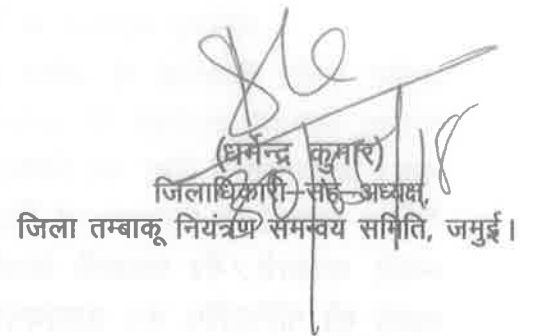 (धर्मेन्द्र कुमार)
जिलाधिकारी–सह–अध्यक्ष,
जिला तम्बाकू नियंत्रण समन्वय समिति, जमुई।